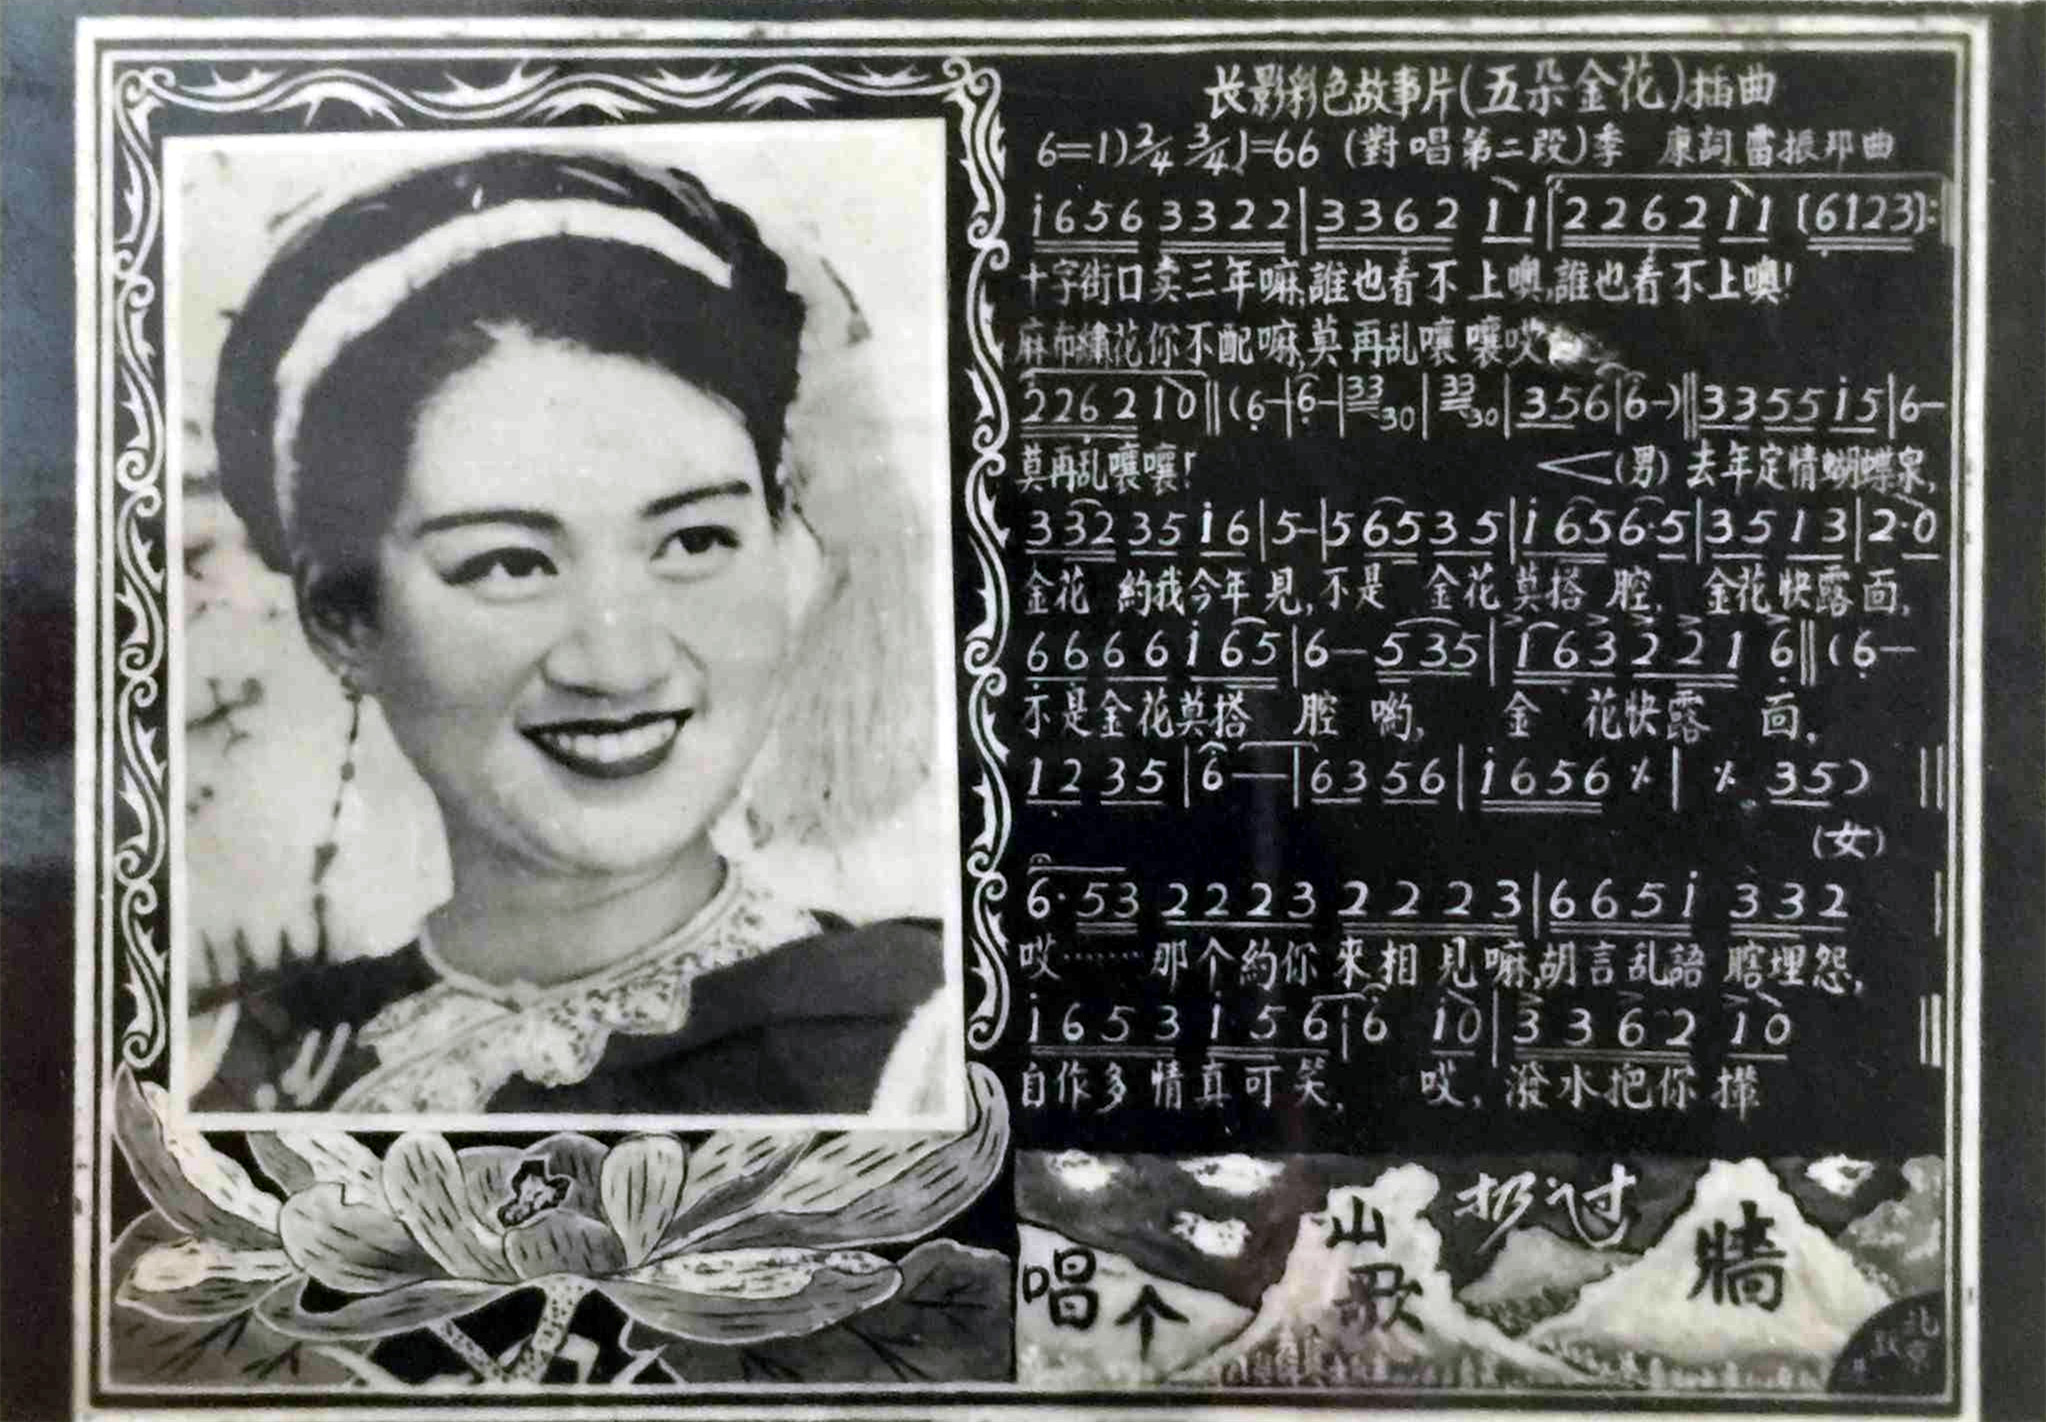 长影彩色故事片(五朵金花)插曲
6=1) 2/4 3/4 ♩=66 (對唱第二段)季 康詞 雷振邦曲
i656 3322|3362 11|2262 11 (6123):
十字街口卖三年嘛,誰也看不上噢,誰也看不上噢!
麻布繡花你不配嘛,莫再乱嚷嚷哎
2262 10‖(6-|6-|33 30|33 30|356|6-)‖3355i5|6-
莫再乱嚷嚷! (男)去年定情蝴蝶泉,
332 35 i6|5-|56535|i656·5|35 13|2·0
金花 約我今年見,不是 金花莫搭 腔, 金花快露面,
6666i65|6-535|i63221 6‖(6-
不是金花莫搭 腔 喲, 金 花快露 面,
12 35|6-|6356|i656 ٪| ٪ 35) ‖
(女)
6·53 2223 2223|665i 332
哎········那个約你 來相 見嘛,胡言乱語 瞎埋怨,
i653 i56|6 i0|3362 10
自作多情真可笑, 哎,潑水把你撵
唱个山歌扔过牆
北京